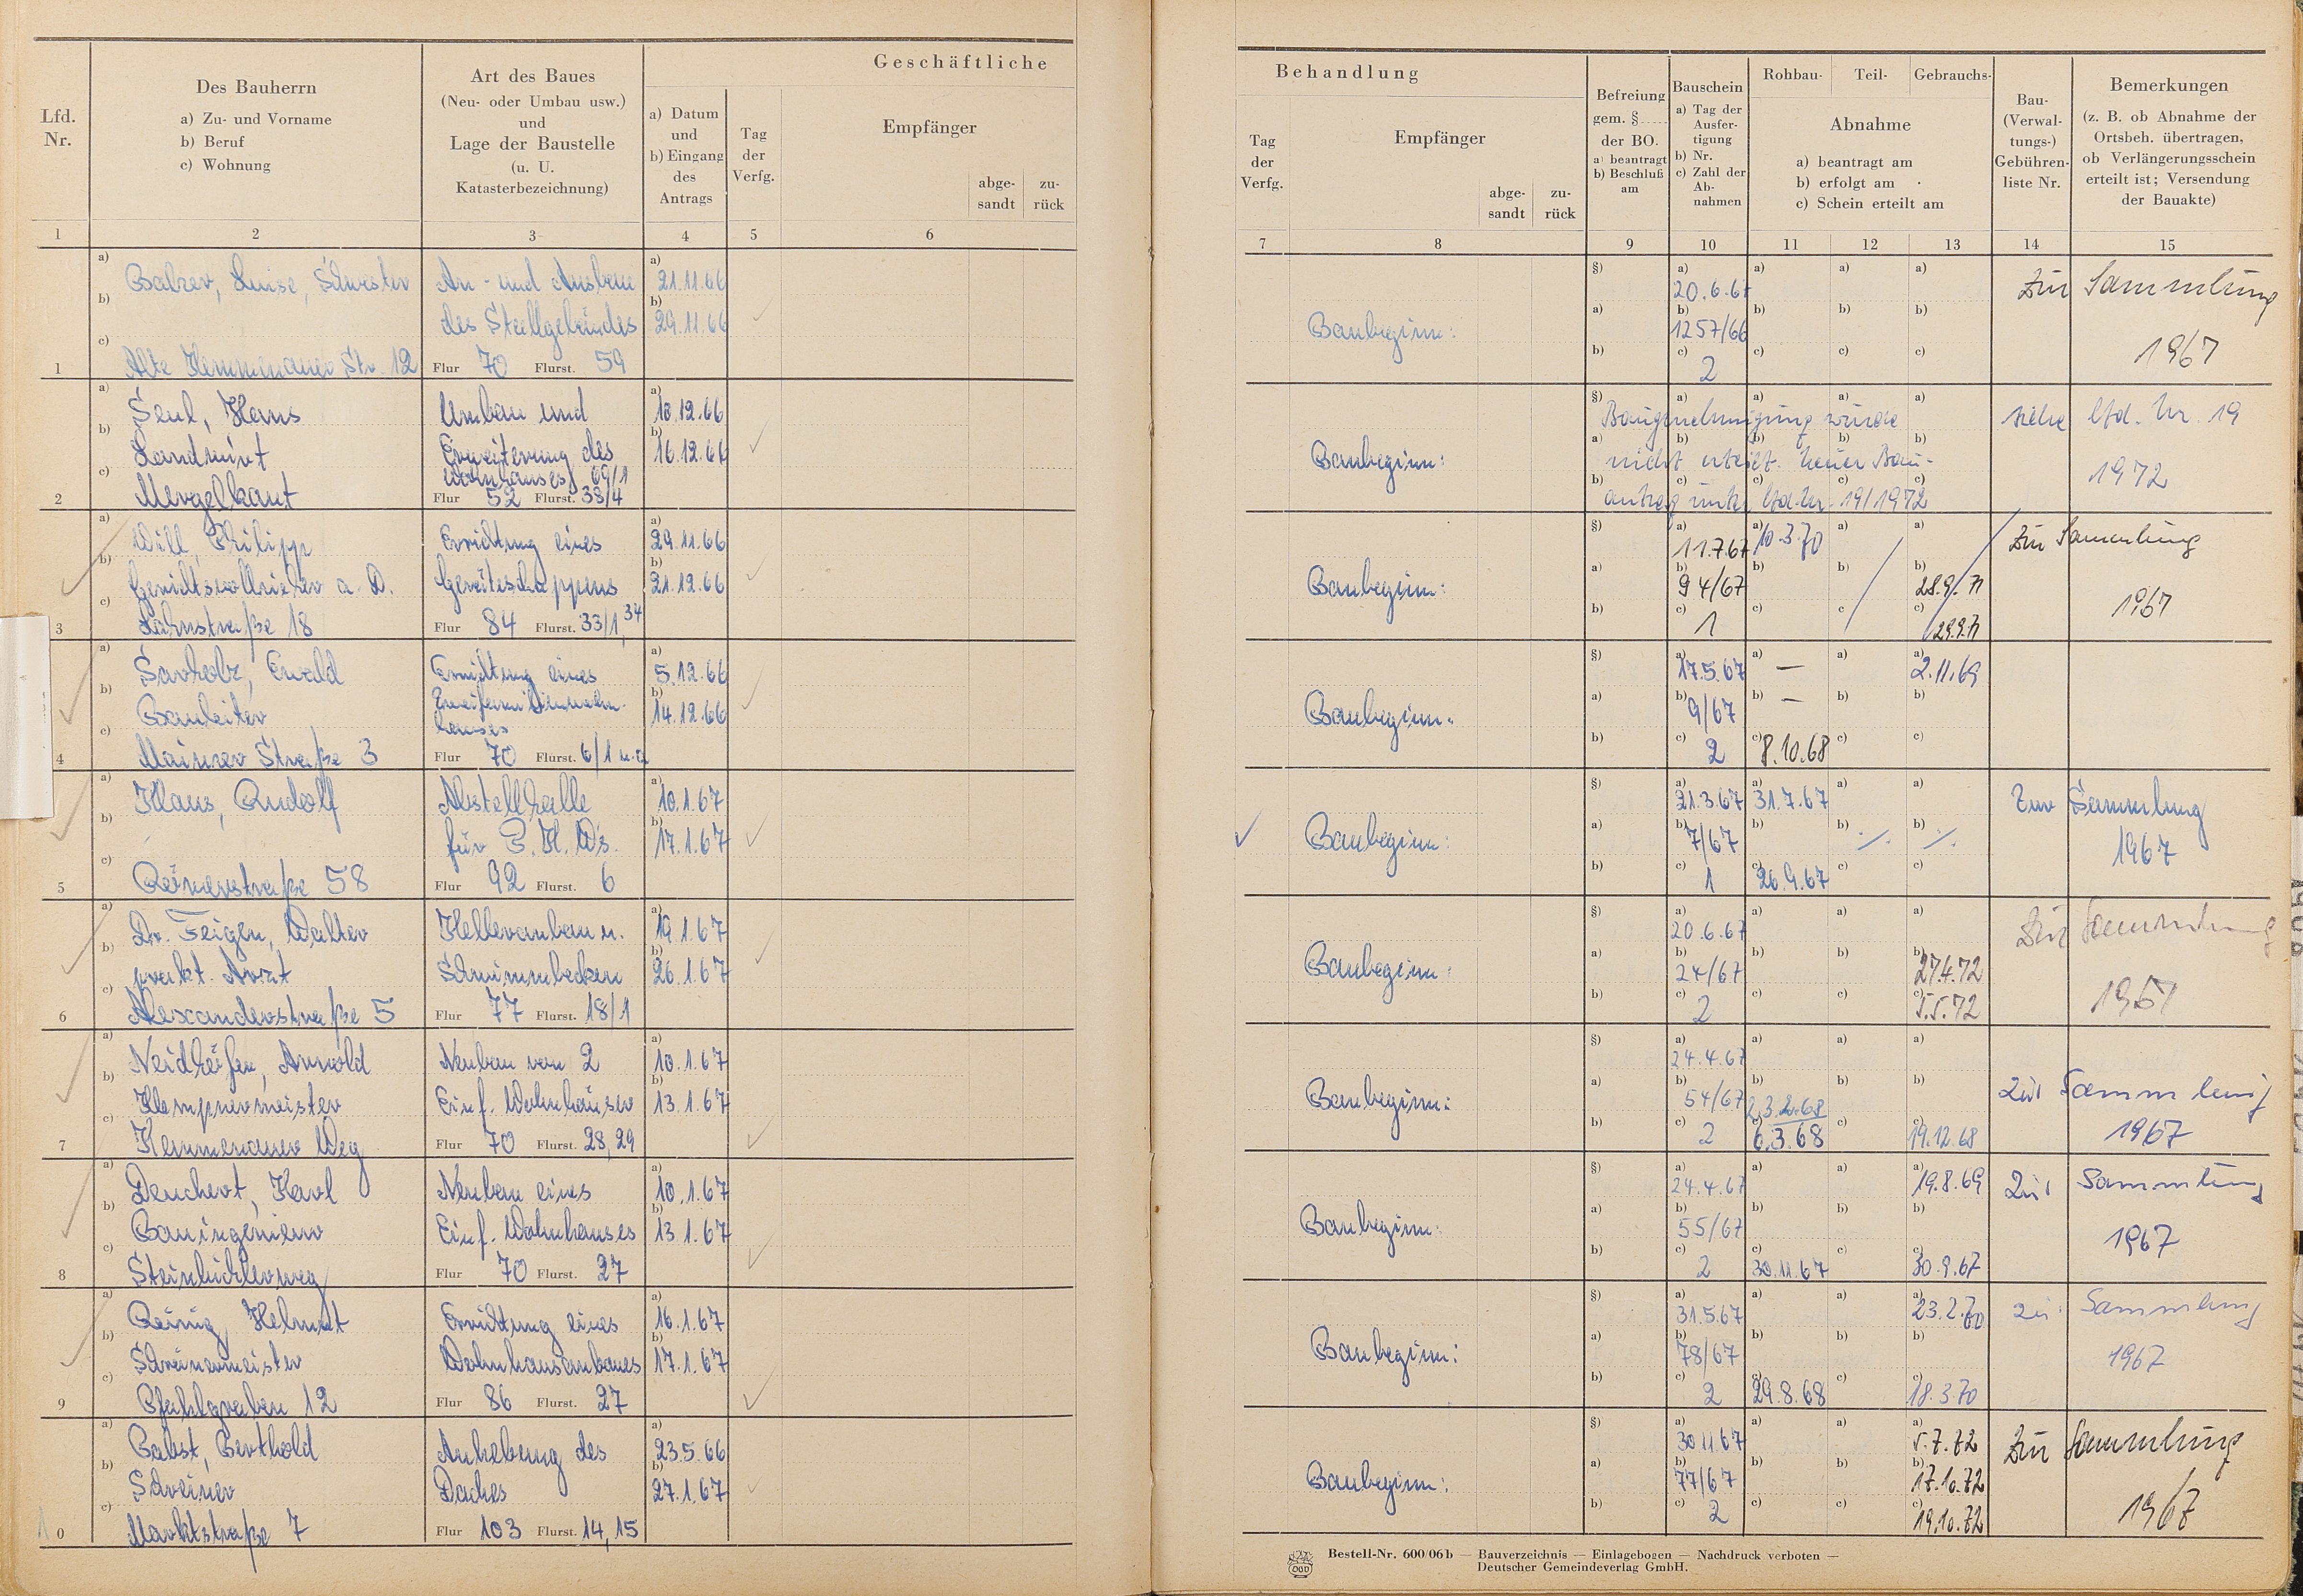 Geschäftliche
Lfd. Nr.
Des Bauherrn
a) Zu- und Vorname
b) Beruf
c) Wohnung
Art des Baues
(Neu- oder Umbau usw.)
und
Lage der Baustelle
(u. U.
Katasterbezeichnung)
a) Datum
und
b) Eingang
des
Antrags
Tag
der
Verfg.
Empfänger
abge-
sandt
zu-
rück
1 2 3 4 5 6
a) Luise, Schwester An- und Ausbau a) 21.11.66
b) des Stallgebäudes b) 29.11.66
c) Alte Kemmenauer Str. 12
1 Flur 70 Flurst. 59
a) Seul, Hans Umbau und a) 10.12.66
b) Landwirt Erweiterung des b) 16.12.66
c) Wohnhauses 69/1
2 Mergelkaut Flur 52 Flurst. 33/4
a) Will, Philipp Errichtung eines a) 29.11.66
b) Gerichtsvollzieher a. D. Geräteschuppens b) 21.12.66
c) Lahnstraße 18
3 Flur 84 Flurst. 33/1, 34
a) Ewald Errichtung eines a) 5.12.66
b) Bauleiter Zweifamilienwohn- b) 14.12.66
c) hauses
4 Mainzer Straße 3 Flur 70 Flurst. 6/1 u.a
a) Klaus, Rudolf Abstellhalle a) 10.1.67
b) für P.K.Ws. b) 17.1.67
c) Römerstraße 58
5 Flur 92 Flurst. 6
a) Dr. Feigen, Walter Kelleranbau u. a) 19.1.67
b) prakt. Arzt Schwimmbecken b) 26.1.67
c) Alexanderstraße 5
6 Flur 77 Flurst. 18/1
a) Neidhöfer, Arnold Neubau von 2 a) 10.1.67
b) Klempnermeister Einf. Wohnhäuser b) 13.1.67
c) Kemmenauer Weg
7 Flur 70 Flurst. 28, 29
a) Deuchert, Karl Neubau eines a) 10.1.67
b) Bauingenieur Einf. Wohnhauses b) 13.1.67
c)
8 Flur 70 Flurst. 27
a) Reinig, Helmut Errichtung eines a) 16.1.67
b) Schreinermeister Wohnhausanbaues b) 17.1.67
c) Pfahlgraben 12
9 Flur 86 Flurst. 27
a) Pabst, Berthold Anhebung des a) 23.5.66
b) Schreiner Daches b) 27.1.67
c) Marktstraße 7
10 Flur 103 Flurst. 14, 15
Behandlung
Tag
der
Verfg.
Empfänger
abge-
sandt
zu-
rück
Befreiung
gem. §
der BO.
a) beantragt
b) Beschluß
am
Bauschein
a) Tag der
Ausfer-
tigung
b) Nr.
c) Zahl der
Ab-
nahmen
Rohbau- Teil- Gebrauchs-
Abnahme
a) beantragt am
b) erfolgt am
c) Schein erteilt am
Bau-
(Verwal-
tungs-)
Gebühren-
liste Nr.
Bemerkungen
(z. B. ob Abnahme der
Ortsbeh. übertragen,
ob Verlängerungsschein
erteilt ist; Versendung
der Bauakte)
7 8 9 10 11 12 13 14 15
§) a) 20.6.67 a) a) a) Zur Sammlung
Baubeginn: a) b) 1257/66 b) b) b)
b) c) 2 c) c) c) 1967
§) Baugenehmigung wurde a) a) a) a) siehe lfd. Nr. 19
Baubeginn: a) nicht erteilt. Neuer Bau- b) b) b) b) 1972
b) antrag unter lfd. Nr. 19/1972 c) c) c) c)
§) a) 11.7.67 a) 10.3.70 a) a) Zur Sammlung
Baubeginn: a) b) 94/67 b) b) b) 28.9.71
b) c) 1 c) c c) 29.9.71 1967
§) a) 17.5.67 a) — a) a) 2.11.69
Baubeginn: a) b) 9/67 b) — b) b)
b) c) 2 c) 8.10.68 c) c)
§) a) 21.3.67 a) 31.7.67 a) a) Zur Sammlung
Baubeginn: a) b) 7/67 b) b) ./. b) ./. 1967
b) c) 1 c) 26.9.67 c) c)
§) a) 20.6.67 a) a) a) Zur Sammlung
Baubeginn: a) b) 24/67 b) b) b) 27.4.72
b) c) 2 c) c) c) 5.5.72 1967
§) a) 24.4.67 a) a) a)
Baubeginn: a) b) 54/67 b) b) b) Zur Sammlung
b) c) 2 c) 6.3.68 c) c) 19.12.68 1967
§) a) 24.4.67 a) a) a) 19.8.69 Zur Sammlung
Baubeginn: a) b) 55/67 b) b) b)
b) c) 2 c) 30.11.67 c) c) 30.9.67 1967
§) a) 31.5.67 a) a) a) 23.2.70 zur Sammlung
Baubeginn: a) b) 78/67 b) b) b) 1967
b) c) 2 c) 29.8.68 c) c) 18.3.70
§) a) 30.11.67 a) a) a) 5.7.72 Zur Sammlung
Baubeginn: a) b) 77/67 b) b) b) 17.10.72
b) c) 2 c) c) c) 19.10.72 1967
Bestell-Nr. 600/06 b — Bauverzeichnis — Einlagebogen — Nachdruck verboten —
Deutscher Gemeindeverlag GmbH.